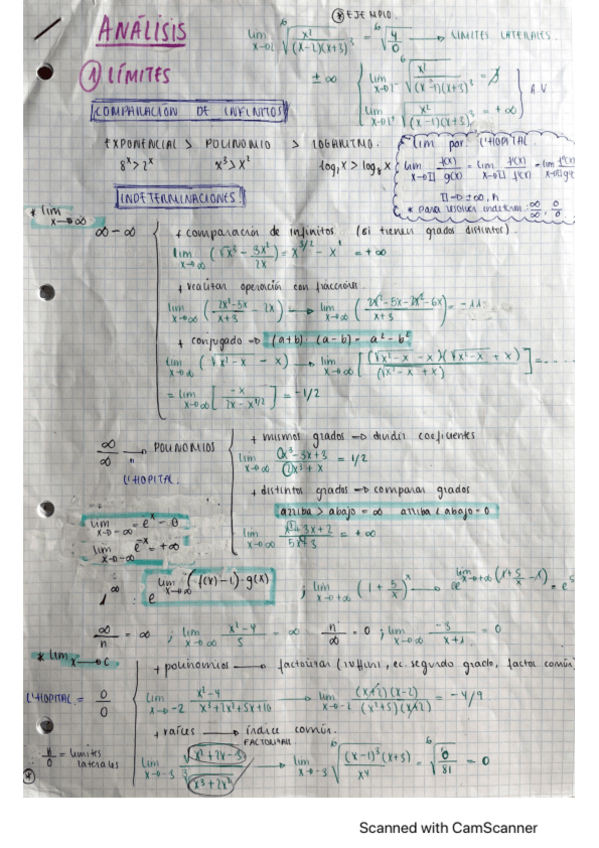 ANÁLISIS
* EJEMPLO.
lim x→2 ⁶√(x²/((x-2)(x+3)³)) = ⁶√(4/0) → LÍMITES LATERALES
① LÍMITES
± ∞
= + ∞
A.V
COMPARACIÓN DE INFINITOS
EXPONENCIAL > POLINOMIO > LOGARITMO.
8ˣ > 2ˣ x³ > x²
* Lim por L'HOPITAL.
INDETERMINACIONES
* lim x→∞
∞ - ∞
+ comparación de infinitos (si tienen grados distintos).
lim x→∞ (√x³ - 3x²/2x) = x^(3/2) - x¹ = +∞
+ realizar operación con fracciones.
lim x→∞ ((2x²-5x)/(x+3) - 2x) → lim x→∞ ((2x²-5x-2x²-6x)/(x+3)) = -11
+ conjugado → (a+b)·(a-b) = a²-b²
lim x→∞ (√x²-x - x) → lim x→∞ [((√x²-x - x)(√x²-x + x))/(√x²-x + x)] = ....
= -1/2
∞/∞ → POLINOMIOS
L'HOPITAL
+ mismos grados → dividir coeficientes
lim x→∞ (x³-3x+3)/(2x³+x) = 1/2
+ distintos grados → comparar grados
arriba > abajo = ∞ arriba < abajo = 0
= +∞
lim x→-∞ = eˣ = 0
lim x→-∞ e⁻ˣ = +∞
1^∞ : e^(lim x→∞ (f(x)-1)·g(x))
; lim x→+∞ (1 + 5/x)ˣ
∞/n = ∞ ; lim x→∞ (x²-4)/5 = ∞ n/∞ = 0 ; lim x→∞ -3/(x+1) = 0
* lim x→c
+ polinomios → factorizar (ruffini, ec. segundo grado, factor común)
L'HOPITAL = 0/0
lim x→-2 (x²-4)/(x³+2x²+5x+10) → lim x→-2 ((x+2)(x-2))/((x²+5)(x+2)) = -4/9
+ raíces → índice común.
FACTORIZAR
n/0 = límites laterales
lim x→-3 → lim x→-3 ⁶√(((x-1)³(x+3))/x⁴) = ⁶√(0/81) = 0
Scanned with CamScanner